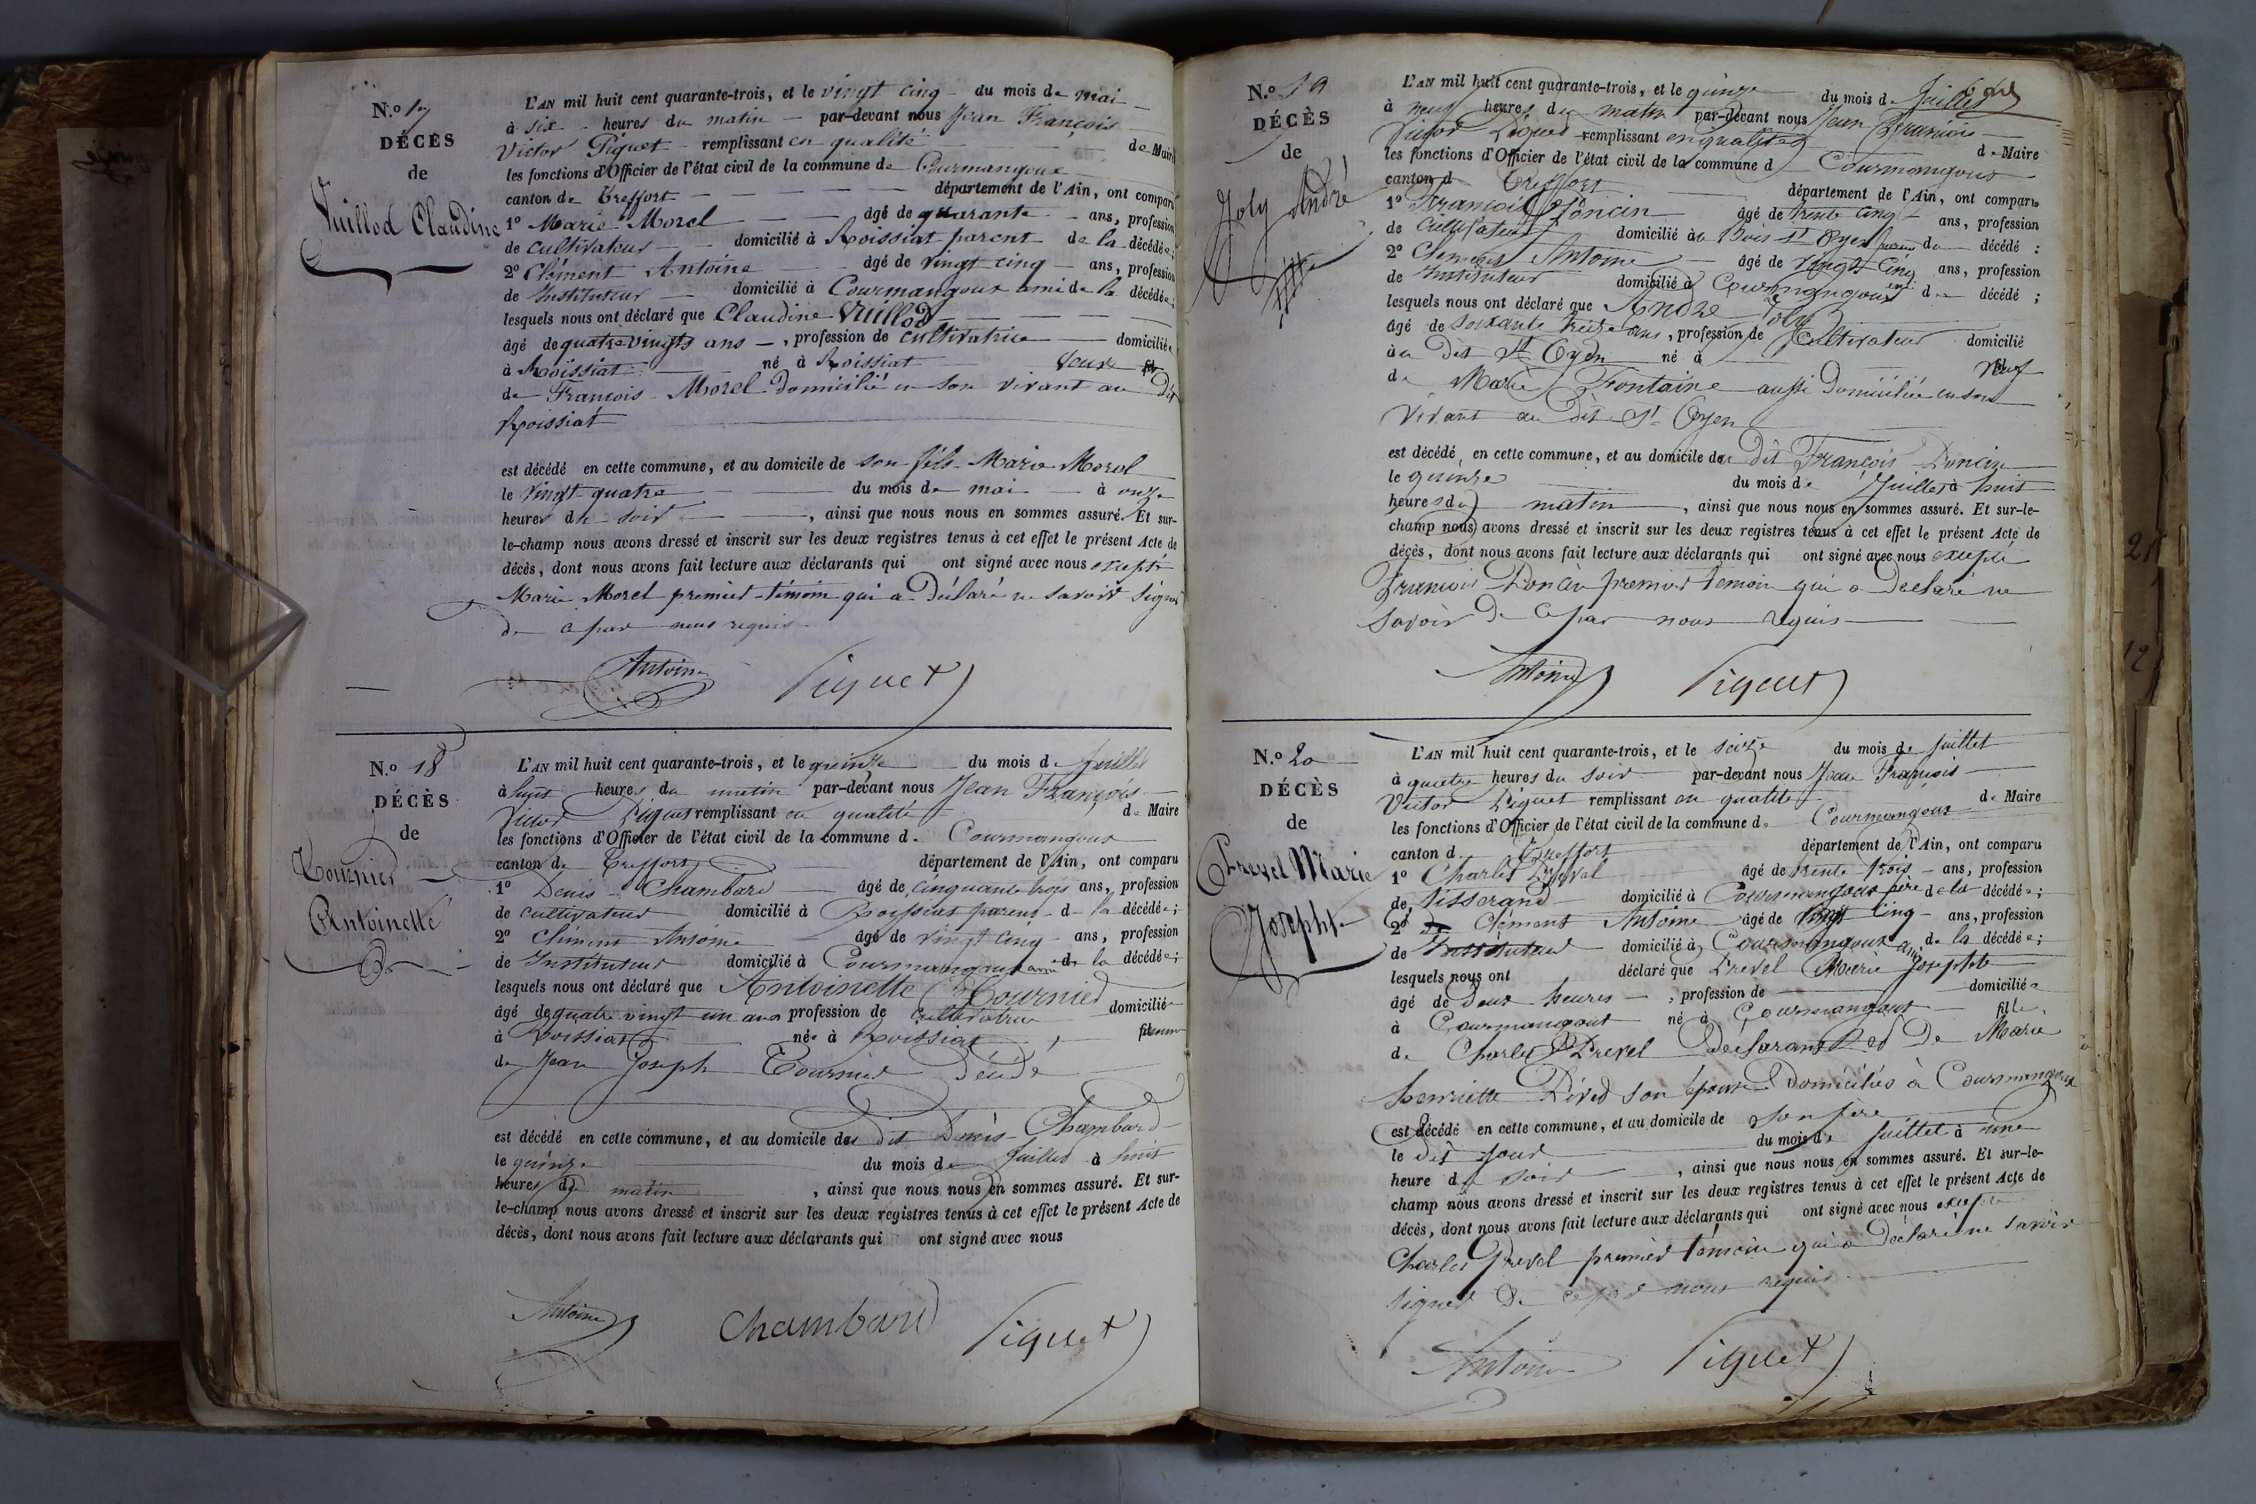 N.º 17
DÉCÈS
de
Vuillod Claudine
L'AN mil huit cent quarante-trois, et le vingt cinq du mois de mai
à six heures du matin par-devant nous Jean François
Victor Piquet remplissant en qualité de Maire
les fonctions d'Officier de l'état civil de la commune de Courmangoux
canton de Treffort département de l'Ain, ont comparu
1º Marie Morel âgé de quarante ans, profession
de cultivateur domicilié à Roissiat parent de la décédée;
2º Clément Antoine âgé de vingt cinq ans, profession
de Instituteur domicilié à Courmangoux ami de la décédée;
lesquels nous ont déclaré que Claudine Vuillod
âgé de quatre vingts ans, profession de cultivatrice domiciliée
à Roissiat né à Roissiat veuve
de François Morel domicilié en son vivant au dit
Roissiat
est décédé en cette commune, et au domicile de son fils Marie Morel
le vingt quatre du mois de mai à onze
heures du soir, ainsi que nous nous en sommes assuré. Et sur-
le-champ nous avons dressé et inscrit sur les deux registres tenus à cet effet le présent Acte de
décès, dont nous avons fait lecture aux déclarants qui ont signé avec nous excepté
Marie Morel premier témoin qui a déclaré ne savoir signer
de ce par nous requis
Antoine Piquet
N.º 18
DÉCÈS
de
Tournier
Antoinette
L'AN mil huit cent quarante-trois, et le quinze du mois de juillet
à huit heures du matin par-devant nous Jean François
Victor Piquet remplissant en qualité de Maire
les fonctions d'Officier de l'état civil de la commune de Courmangoux
canton de Treffort département de l'Ain, ont comparu
1º Denis Chambard âgé de cinquante trois ans, profession
de cultivateur domicilié à Roissiat parent de la décédée;
2º Clément Antoine âgé de vingt cinq ans, profession
de Instituteur domicilié à Courmangoux ami de la décédée;
lesquels nous ont déclaré que Antoinette Tournier
âgé de quatre vingt un ans profession de cultivatrice domiciliée
à Roissiat née à Roissiat, femme
de Jean Joseph Tournier décédé
est décédé en cette commune, et au domicile du dit Denis Chambard
le quinze du mois de juillet à huit
heures du matin, ainsi que nous nous en sommes assuré. Et sur-
le-champ nous avons dressé et inscrit sur les deux registres tenus à cet effet le présent Acte de
décès, dont nous avons fait lecture aux déclarants qui ont signé avec nous
Antoine Chambard Piquet
N.º 19
DÉCÈS
de
Joly André
L'AN mil huit cent quarante-trois, et le quinze du mois de Juillet
à neuf heures du matin par-devant nous Jean François
Victor Piquet remplissant en qualité de Maire
les fonctions d'Officier de l'état civil de la commune d Courmangoux
canton d Treffort département de l'Ain, ont comparu
1º François Poncin âgé de trente cinq ans, profession
de cultivateur domicilié à St Oyen du décédé:
2º Clément Antoine âgé de vingt cinq ans, profession
de Instituteur domicilié à Courmangoux ami du décédé;
lesquels nous ont déclaré que André Joly
âgé de soixante treize ans, profession de cultivateur domicilié
au dit St Oyen né à veuf
de Marie Fontaine aussi domiciliée en son
vivant au dit St Oyen
est décédé en cette commune, et au domicile du dit François Poncin
le quinze du mois de Juillet à huit
heures du matin, ainsi que nous nous en sommes assuré. Et sur-le-
champ nous avons dressé et inscrit sur les deux registres tenus à cet effet le présent Acte de
décès, dont nous avons fait lecture aux déclarants qui ont signé avec nous excepté
François Poncin premier temoin qui a déclaré ne
savoir de ce par nous requis
Antoine Piquet
N.º 20
DÉCÈS
de
Prevel Marie
Josephte
L'AN mil huit cent quarante-trois, et le seize du mois de juillet
à quatre heures du soir par-devant nous Jean François
Victor Piquet remplissant en qualité de Maire
les fonctions d'Officier de l'état civil de la commune de Courmangoux
canton d. Treffort département de l'Ain, ont comparu
1º Charles Prevel âgé de trente trois ans, profession
de tisserand domicilié à Courmangoux père de la décédée;
2º Clément Antoine âgé de vingt cinq ans, profession
de Instituteur domicilié à Courmangoux ami de la décédée;
lesquels nous ont déclaré que Prevel Marie Josephte
âgé de deux heures, profession de domiciliée
à Courmangoux né à Courmangoux fille
de Charles Prevel déclarant et de Marie
henriette son épouse domiciliés à Courmangoux
est décédé en cette commune, et au domicile de son père
le dit jour du mois de juillet à une
heure du soir, ainsi que nous nous en sommes assuré. Et sur-le-
champ nous avons dressé et inscrit sur les deux registres tenus à cet effet le présent Acte de
décès, dont nous avons fait lecture aux déclarants qui ont signé avec nous excepté
Charles Prevel premier témoin qui a déclaré ne savoir
signer de ce par nous requis
Antoine Piquet